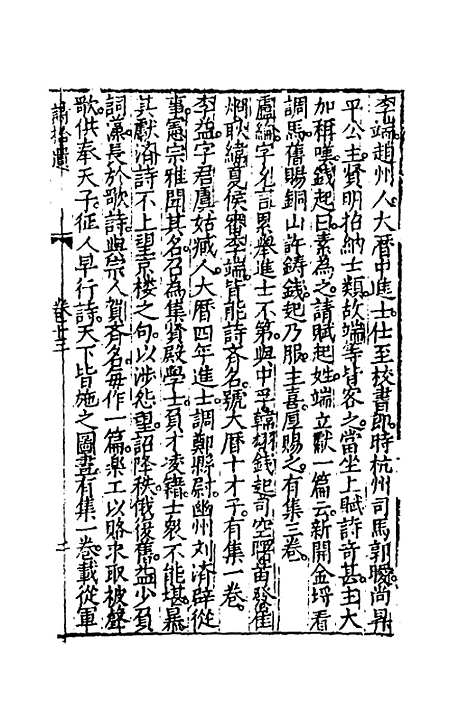 李端趙州人大曆中進士仕至校書郎時杭州司馬郭曖尚昇
平公主賢明拍納士類故端等皆客之當坐上賦詩奇甚主大
加稱嘆錢起曰素為之請賦起姓端立獻一篇云新開金埒看
調馬舊賜銅山許鑄錢起乃服主喜厚賜之有集三卷
盧綸字允言累舉進士不第與中孚韓翃錢起司空曙苗發崔
峒耿緯夏侯審李端皆能詩齊名號大曆十才子有集一卷
李益字君虞姑臧人大曆四年進士調鄭縣尉幽州刘濟辟從
事憲宗雅聞其名召為集賢殿學士負才凌籍士衆不能堪暴
其獻濟詩不上望京楼之句以涉怨望詔降秩俄復舊益少負
詞藻長於歌詩與宗人賀齊名每作一篇楽工以賂求取被聲
歌供奉天子征人早行詩天下皆施之圖畫有集一卷載從軍
詩拾遺
卷廿三
二